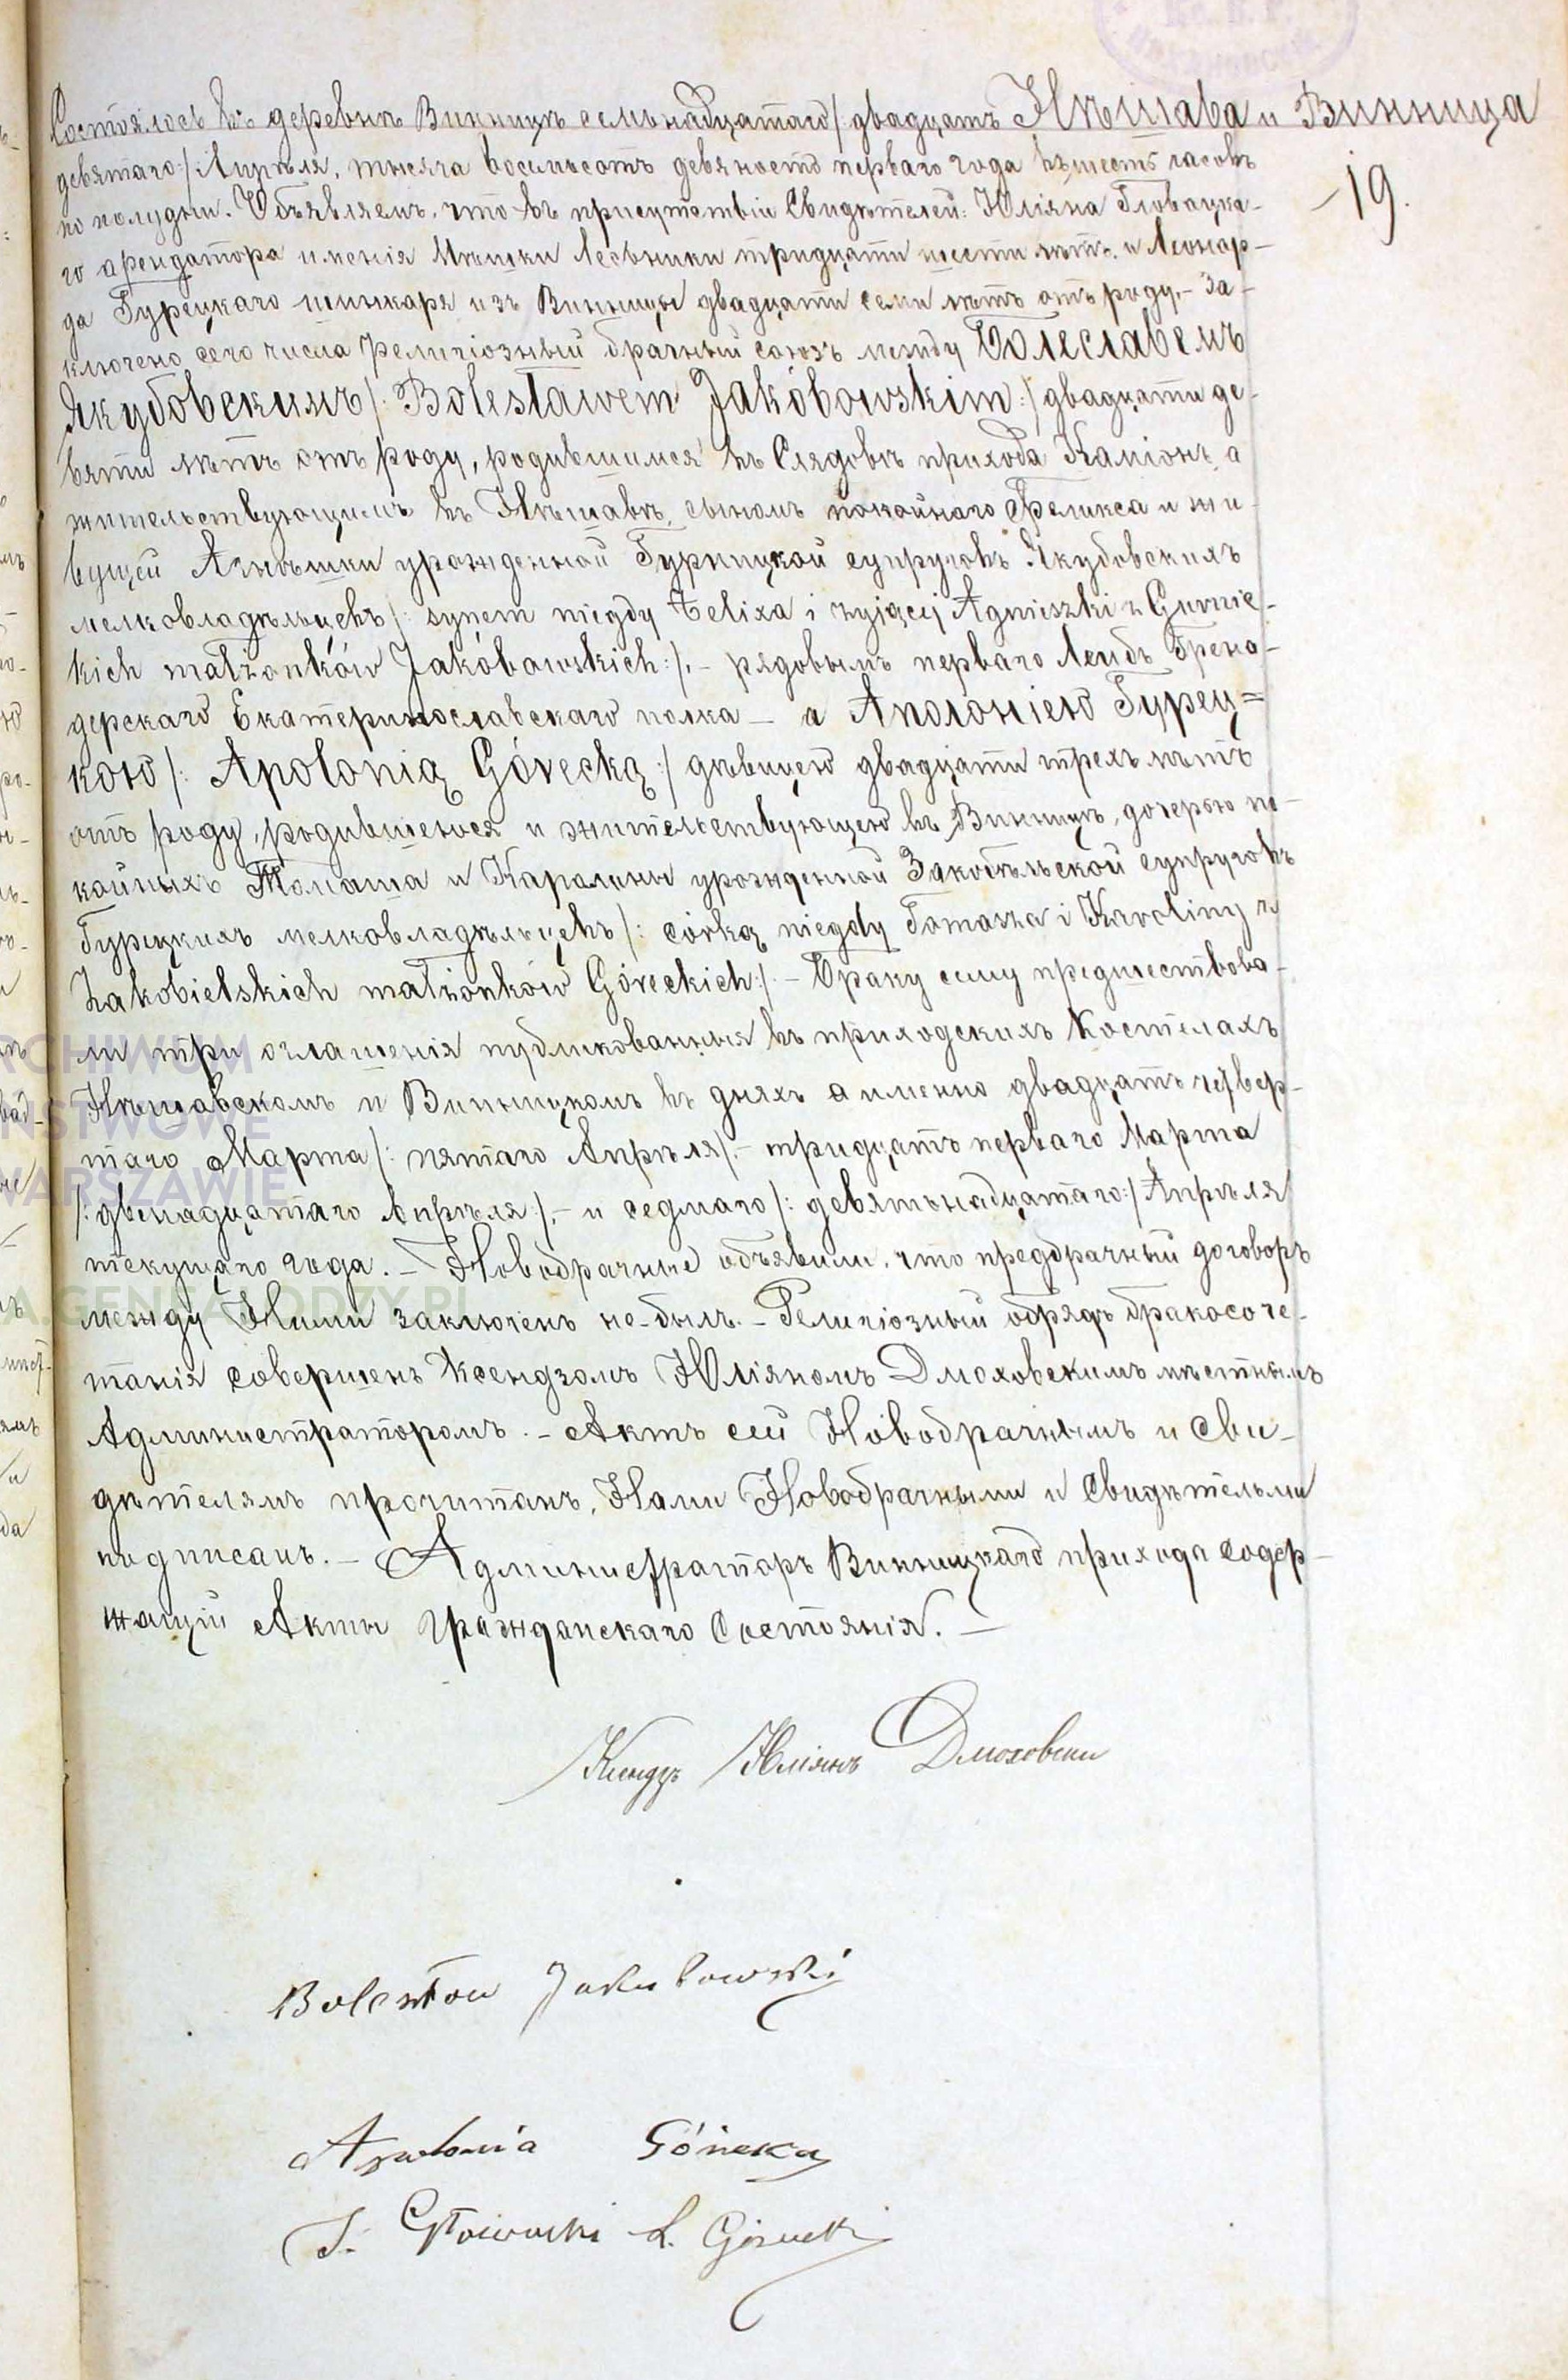 Нѣшава и Винница
19.
Состоялось въ деревнѣ Винницѣ семьнадцатаго /: двадцать
девятаго :/ Апрѣля, тысяча восемьсотъ девяносто перваго года въ шесть часовъ
по полудни. Объявляемъ, что въ присутствіи Свидѣтелей: Юліяна Гловацка-
го арендатора имѣнія Мѣшки Лесьники тридцати шести лѣтъ, и Леонар-
да Гурецкаго шинкаря изъ Винницы двадцати семи лѣтъ отъ роду, – За-
ключено сего числа религіозный брачный союзъ между Болеславемъ
Якубовскимъ /: Bolesławem Jakóbowskim :/ двадцати де-
вяти лѣтъ отъ роду, родившимся въ Слядовѣ прихода Каміонъ, а
жительствующимъ въ Нѣшавѣ, сыномъ покойнаго Феликса и жи-
вущей Агнѣшки урожденной Гурницкой супруговъ Якубовскихъ
мелковладѣльцевъ /: synem niegdy Felixa i żyjącej Agnieszki z Gurnic-
kich małżonków Jakóbowskich :/, – рядовымъ перваго Лейбъ Грена-
дерскаго Екатеринославскаго полка – а Аполоніею Гурец=
кою /: Apolonią Górecką :/ дѣвицею двадцати трехъ лѣтъ
отъ роду, родившеюся и жительствующею въ Винницѣ, дочерью по-
койныхъ Томаша и Каролины урожденной Закобѣльской супруговъ
Гурецкихъ мелковладѣльцевъ /: córką niegdy Tomasza i Karoliny z
Zakobielskich małżonków Góreckich :/ – Браку сему предшествова-
ли три оглашенія публикованныя въ приходскихъ Костелахъ
Нѣшавскомъ и Винницкомъ въ дняхъ а именно двадцать четвер-
таго Марта /: пятаго Апрѣля :/, – тридцать перваго Марта
/: двенадцатаго Апрѣля :/, – и седмаго /: девятьнадцатаго :/ Апрѣля
текущаго года. – Новобрачные объявили, что предбрачный договоръ
между Ними заключенъ не-былъ. – Религіозный обрядъ бракосоче-
танія совершенъ Ксендзомъ Юліяномъ Дмоховскимъ мѣстнымъ
Администраторомъ. – Актъ сей Новобрачнымъ и Сви-
дѣтелямъ прочитанъ, Нами Новобрачными и Свидѣтельми
подписанъ. – Администраторъ Винницкаго прихода Содер-
жащій Акты Гражданскаго Состоянія. –
Ксендзъ Юліянъ Дмоховски
Bolesław Jakubowski
Apolonia Górecka
J. Głowacki L. Górecki
ARCHIWUM
PAŃSTWOWE
W WARSZAWIE